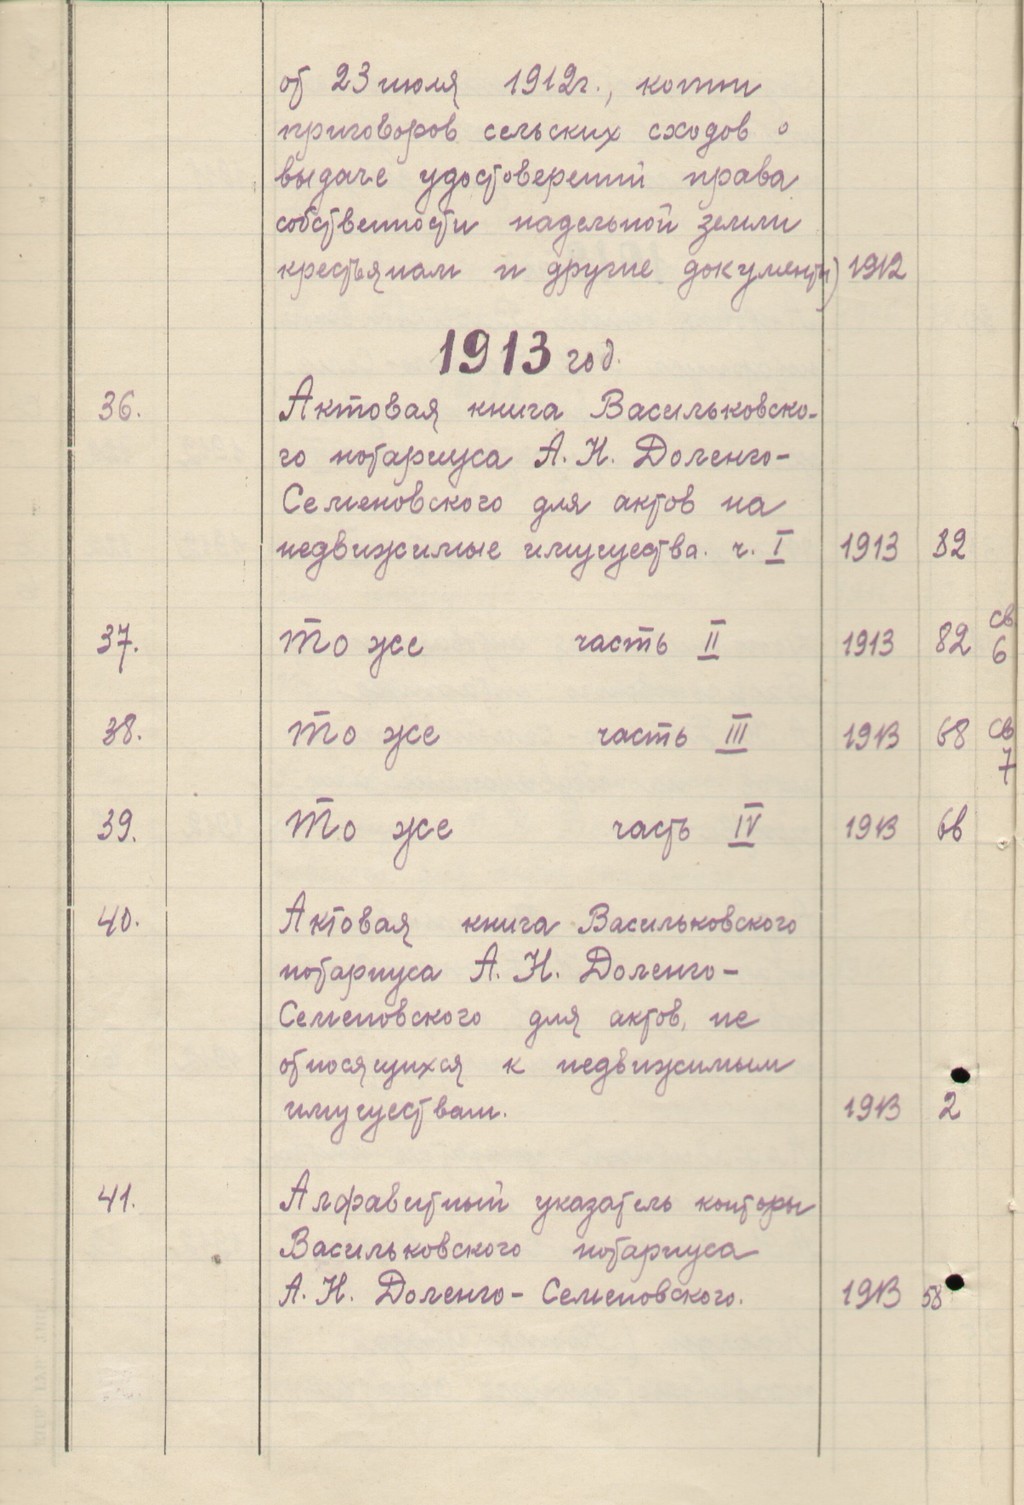 от 23 июля 1912г., копии
приговоров сельских сходов о
выдаче удостоверений права
собственности надельной земли
крестьянам и другие документы) 1912
1913 год.
36. Актовая книга Васильковско-
го нотариуса А. Н. Доленго-
Семеновского для актов на
недвижимые имущества. ч. I 1913 82
37. То же часть II 1913 82 св 6
38. То же часть III 1913 68 св 7
39. То же часть IV 1913
40. Актовая книга Васильковского
нотариуса А. Н. Доленго-
Семеновского для актов, не
относящихся к недвижимым
имуществам. 1913 2
41. Алфавитный указатель конторы
Васильковского нотариуса
А. Н. Доленго-Семеновского. 1913 58